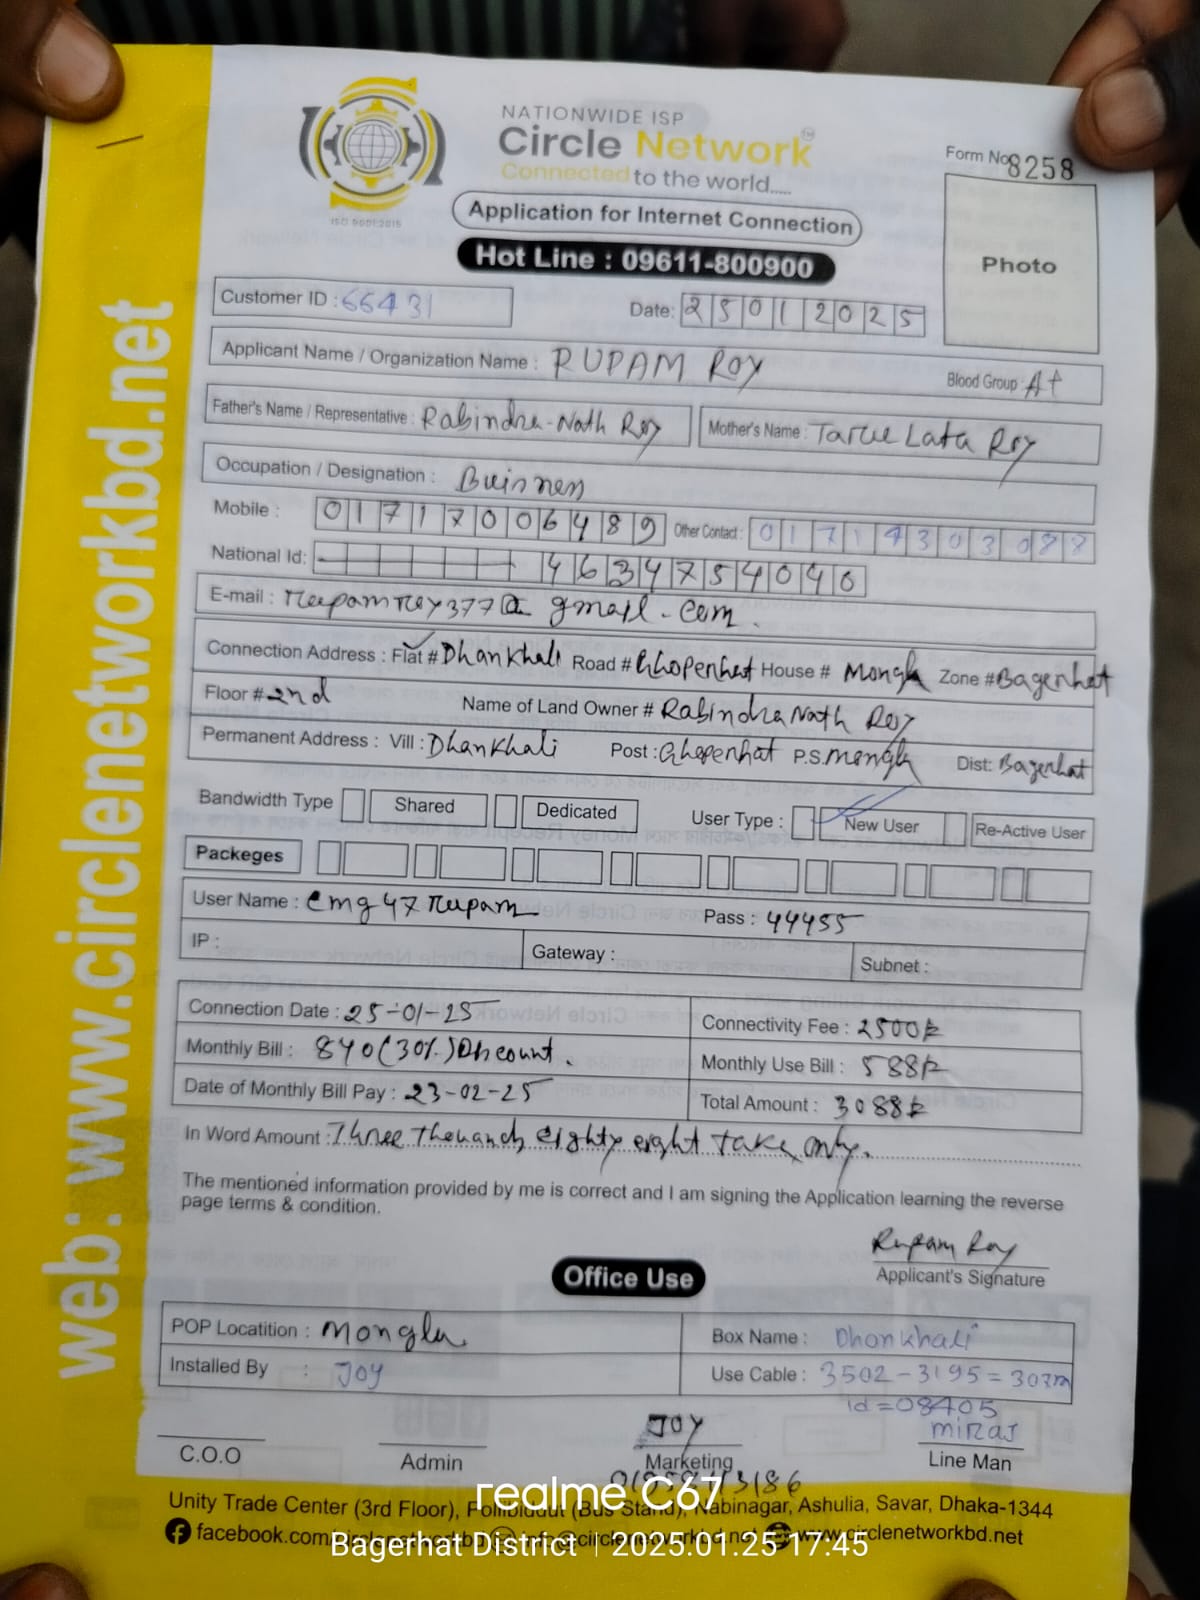 NATIONWIDE ISP
Circle Network™
Connected to the world.....
ISO 9001:2015
Form No 8258
Application for Internet Connection
Hot Line : 09611-800900
Photo
Customer ID : 66431
Date: 25012025
Applicant Name / Organization Name : RUPAM ROY
Blood Group : A+
Father's Name / Representative : Rabindra-Nath Roy
Mother's Name : Tarue Lata Roy
Occupation / Designation : Buisness
Mobile : 01717006489 Other Contact : 01714303088
National Id: 4634754040
E-mail : rupamroy377@gmail.com.
Connection Address : Flat # Dhankhali Road # Ghopenhat House # Mongla Zone # Bagerhat
Floor # 2nd Name of Land Owner # Rabindra Nath Roy
Permanent Address : Vill : Dhankhali Post : Ghopenhat P.S. Mongla Dist: Bagerhat
Bandwidth Type Shared Dedicated User Type : New User Re-Active User
Packeges
User Name : cmg47rupam Pass : 44455
IP : Gateway : Subnet :
Connection Date : 25-01-25 Connectivity Fee : 2500
Monthly Bill : 840 (30%) Discount. Monthly Use Bill : 588
Date of Monthly Bill Pay : 23-02-25 Total Amount : 3088
In Word Amount : Three Thousands eighty eight taka only.
The mentioned information provided by me is correct and I am signing the Application learning the reverse
page terms & condition.
Rupam Roy
Applicant's Signature
Office Use
POP Locatition : Mongla Box Name : Dhonkhali
Installed By : Joy Use Cable : 3502-3195=307m
id=08405
JOY miraj
C.O.O Admin Marketing Line Man
Unity Trade Center (3rd Floor), Pollibiddut (Bus Stand), Nabinagar, Ashulia, Savar, Dhaka-1344
facebook.com/circlenetworkbd info@circlenetworkbd.net www.circlenetworkbd.net
web: www.circlenetworkbd.net
realme C67
Bagerhat District | 2025.01.25 17:45